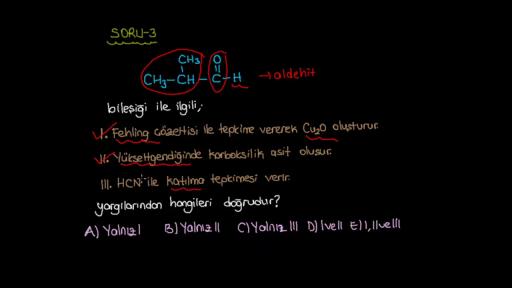 SORU-3
CH₃ O
CH₃-CH-C-H → aldehit
bileşiği ile ilgili,
I. Fehling çözeltisi ile tepkime vererek Cu₂O oluşturur.
II. Yükseltgendiğinde karboksilik asit oluşur.
III. HCN ile katılma tepkimesi verir.
yargılarından hangileri doğrudur?
A) Yalnız I B) Yalnız II C) Yalnız III D) I ve II E) I, II ve III